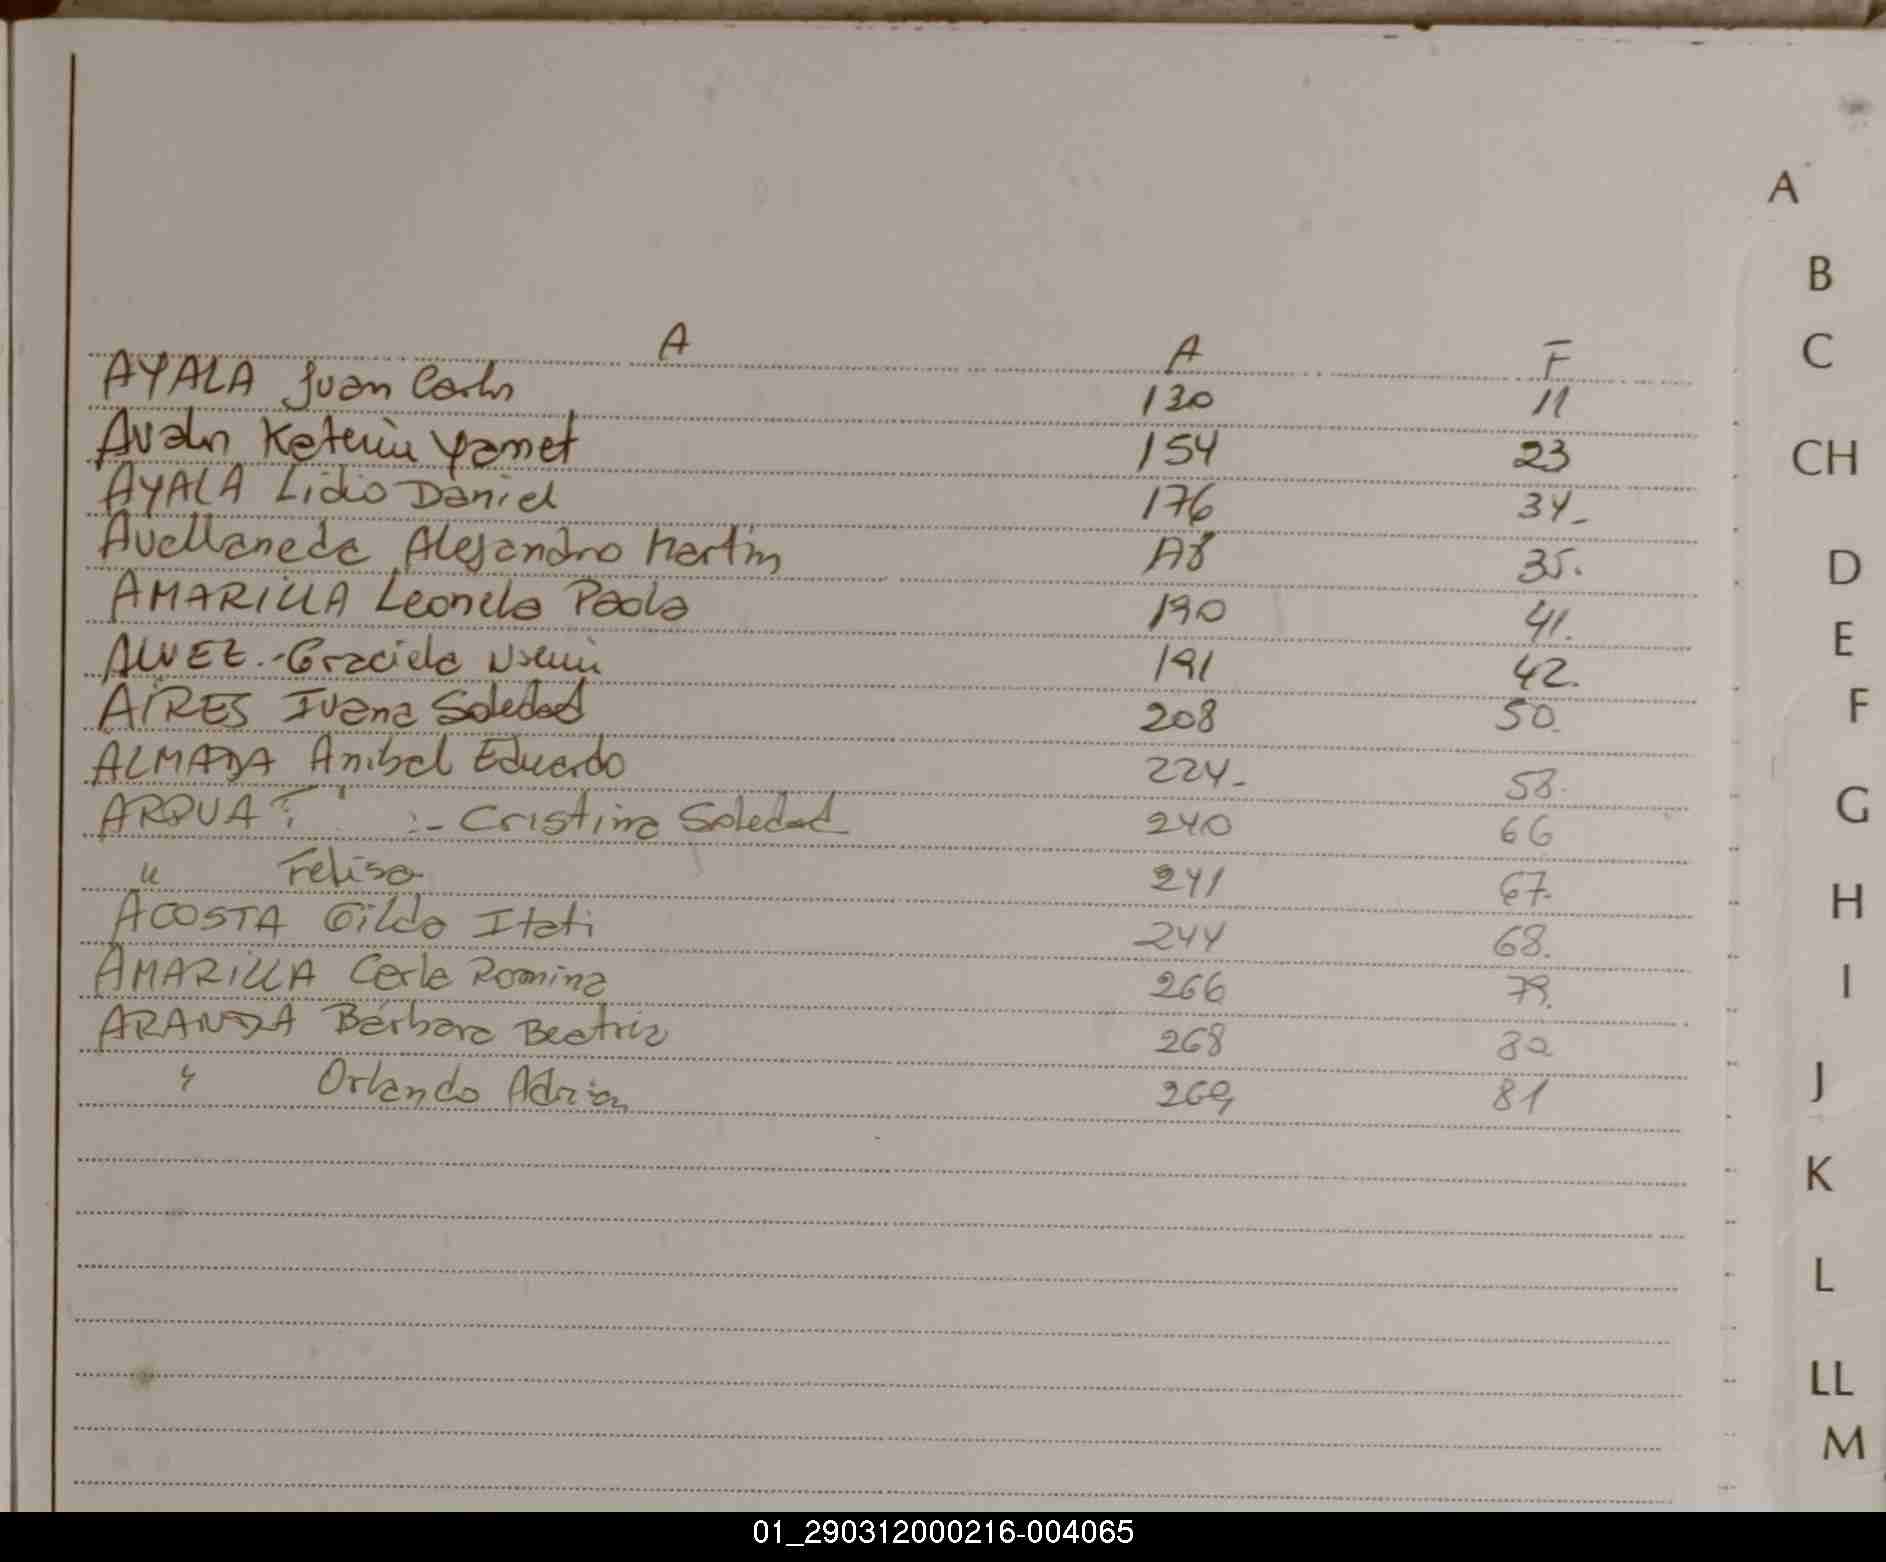 A A F
AYALA Juan Carlos 130 11
Avalos Katerin Yamet 154 23
AYALA Lidio Daniel 176 34-
Avellaneda Alejandro Martin 178 35.
AMARILLA Leonela Paola 190 41.
ALVEZ.- Graciela Noemi 191 42.
AIRES Ivana Soledad 208 50.
ALMADA Anibal Eduardo 224- 58.
ARQUA :- Cristina Soledad 240 66
" Felisa 241 67.
ACOSTA Gilda Itati 244 68.
AMARILLA Carla Romina 266 79.
ARANDA Bárbara Beatriz 268 80
" Orlando Adrian 269 81
A
B
C
CH
D
E
F
G
H
I
J
K
L
LL
M
01_290312000216-004065